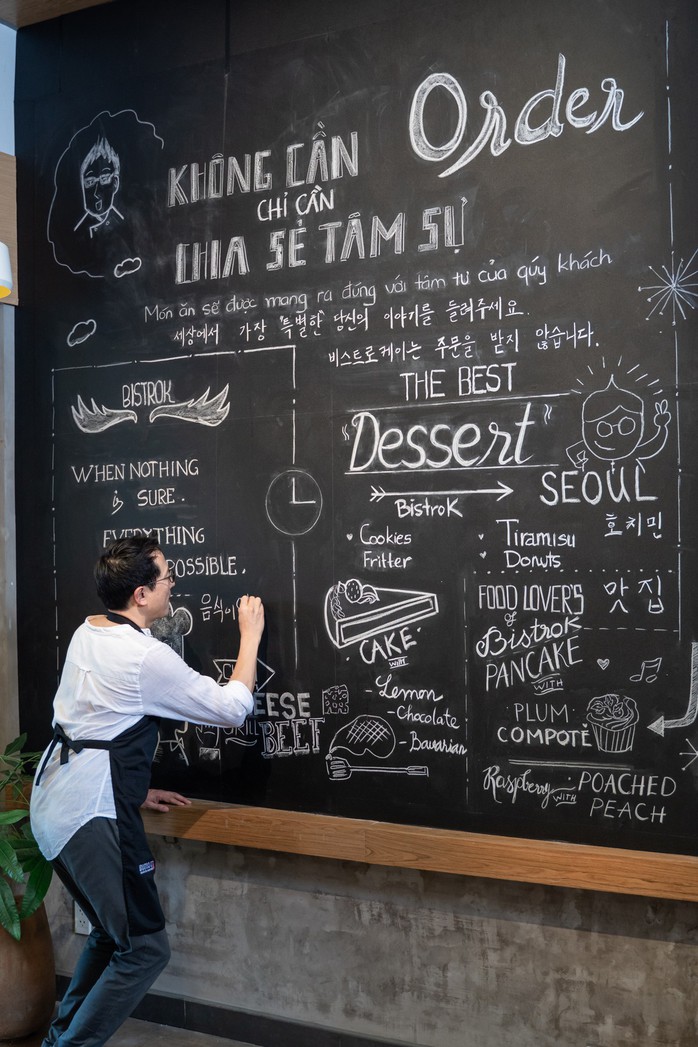 Order
KHÔNG CẦN
CHỈ CẦN
CHIA SẺ TÂM SỰ
Món ăn sẽ được mang ra đúng với tâm tư của quý khách
세상에서 가장 "특별한" 당신의 이야기를 들려주세요.
비스트로케이는 주문을 받지 않습니다.
BISTROK
WHEN NOTHING
is SURE.
EVERYTHING
POSSIBLE.
음식이
CHEESE
GRILL
BEEF
THE BEST
"Dessert"
BistroK
SEOUL
호치민
맛집
Cookies
Fritter
Tiramisu
Donuts
CAKE
WITH
- Lemon
- Chocolate
- Bavarian
FOOD LOVER'S
of
BistroK
PANCAKE
WITH
PLUM
COMPOTE
Raspberry WITH POACHED
PEACH